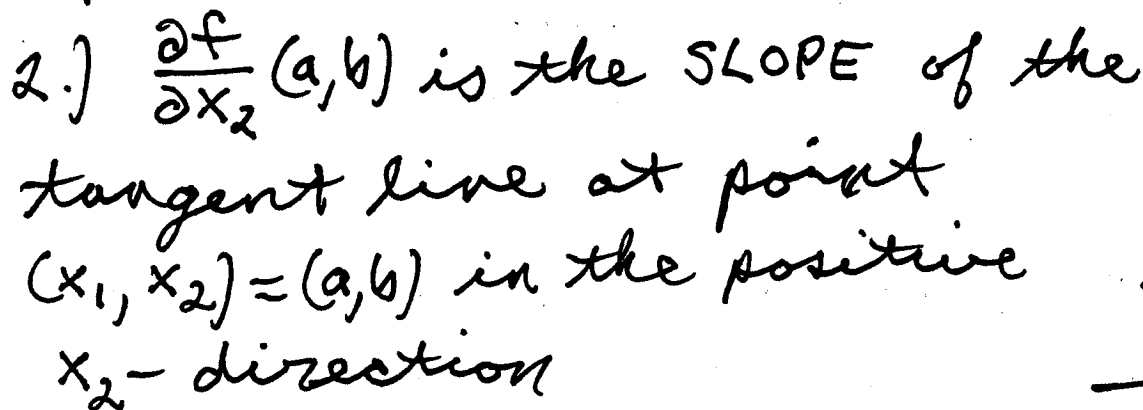 2.) ∂f/∂x₂ (a,b) is the SLOPE of the
tangent line at point
(x₁, x₂) = (a,b) in the positive
x₂ - direction